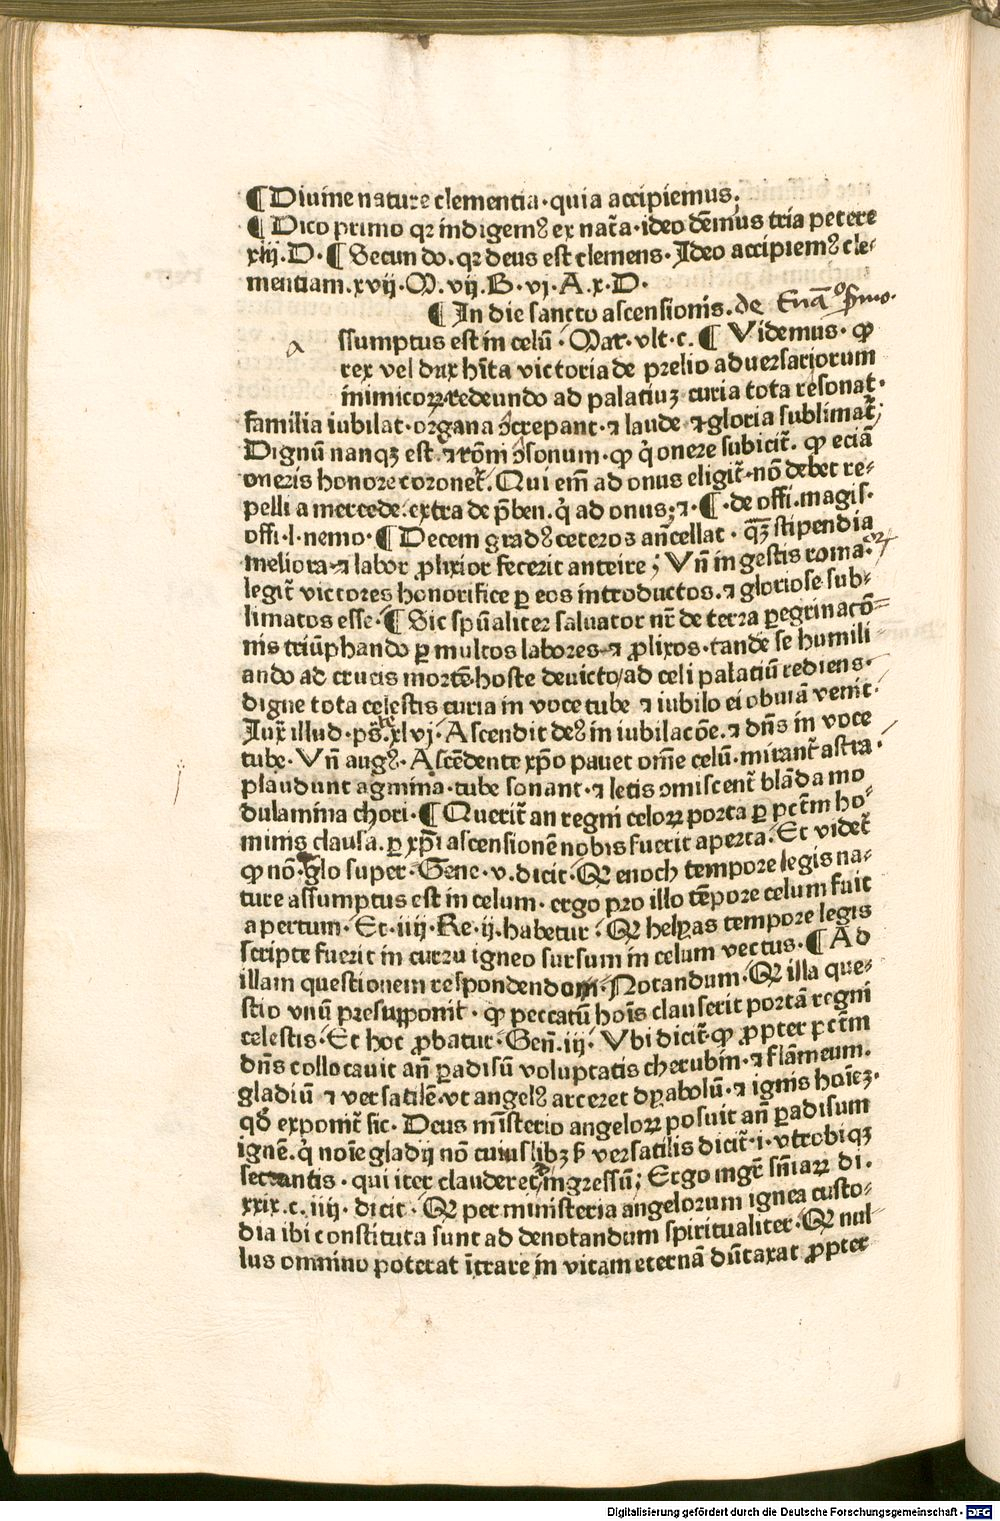 ¶ Diuine nature clementia · quia accipiemus.
¶ Dico primo qꝛ indigemꝰ ex nat̃a · ideo dem̃us tria petere
xlij. D · ¶ Secundo. qꝛ deus est clemens · Ideo accipiemꝰ cle⸗
mentiam. xvij · M. vij. B · vj · A. x. D ·
¶ In die sancto ascensionis. de Euã° p̃mo.
a ssumptus est in celũ · Mat · vlt · c. ¶ Videmus · ꝙ
rex vel dux hĩta victoria de prelio aduersariorum
inimicoꝝ · redeundo ad palatiuꝫ curia tota resonat ·
familia iubilat · organa ↄcrepant · ⁊ laude ⁊ gloria sublimat̃;
Dignũ nanqꝫ est ⁊ rõni ↄsonum · ꝙ q̇ onere subicit̃. ꝙ eciã
oneris honore coronet̃. Qui em̃ ad onus eligit̃ · nõ debet re⸗
pelli a mercede. extra de p̃ben. q̇ ad onus; ⁊ · ¶ · de offi. magis.
offi · l · nemo · ¶ Decem gradꝰ ceteros an̄cellat · qꝫ̃ stipendia
meliora ⁊ labor ꝓlixior fecerit anteire; Vñ in gestis romaꝝ
legit̃ victores honorifice ꝑ eos introductos. ⁊ gloriose sub⸗
limatos esse · ¶ Sic spũaliter saluator nr̃ de terra ꝑegrinacõ⸗
nis triũphando ꝑ multos labores ⁊ ꝓlixos · tandẽ se humili
ando ad crucis mortẽ · hoste deuicto / ad celi palatiũ rediens ·
digne tota celestis curia in voce tube ⁊ iubilo ei obuiã venit ·
Iux̃ illud · pš. xlvj · Ascendit deꝰ in iubilacõe. ⁊ dñs in voce
tube · Vñ augꝰ · Ascẽdente xp̃o pauet om̃e celũ · mirant̃ astra ·
plaudunt agmina · tube sonant · ⁊ letis ↄmiscent̃ blãda mo
dulamina chori · ¶ Querit̃ an regni celoꝝ porta ꝑ pctm̃ ho⸗
minis clausa. ꝑ xp̃i ascensionẽ nobis fuerit aperta. Et videt̃
ꝙ nõ · glo super · Gene · v. dicit · Qꝛ enoch tempore legis na⸗
ture assumptus est in celum · ergo pro illo tẽpore celum fuit
apertum · Et · iiij · Re · ij. habetur · Qꝛ helyas tempore legis
scripte fuerit in curru igneo sursum in celum vectus · ¶ Ad
illam questionem respondendom · Notandum · Qꝛ illa que⸗
stio vnũ presupponit · ꝙ peccatũ hoĩs clauserit portã regni
celestis · Et hoc ꝓbatur · Gen̄. iij · Vbi dicit̃ · ꝙ ꝓpter pctm̃
dñs collocauit añ ꝑadisũ voluptatis cherubin · ⁊ flãmeum.
gladiũ ⁊ versatilẽ · vt angelꝰ arceret dyabolũ · ⁊ ignis hoĩeꝫ ·
qð exponit̃ sic · Deus mĩsterio angeloꝝ posuit añ ꝑadisum
ignẽ. q̇ noĩe gladij nõ cuiuslibꝫ sꝫ versatilis dicit̃ · i · vtrobiqꝫ
secrantis · qui iter clauderet ingressũ; Ergo mgr̃ sñiaꝝ di.
xxix. c. iiij · dicit · Qꝛ per ministeria angelorum ignea custo⸗
dia ibi constituta sunt ad denotandum spiritualiter · Qꝛ nul⸗
lus omnino poterat ĩtrare in vitam eternã dũtaxat ꝓpter
Digitalisierung gefördert durch die Deutsche Forschungsgemeinschaft - DFG